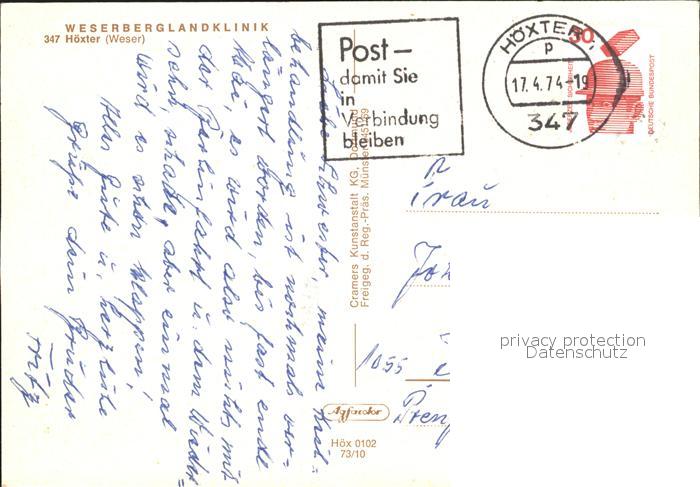 WESERBERGLANDKLINIK
347 Höxter (Weser)
Post-
damit Sie
in
Verbindung
bleiben
HÖXTER 1
p
17.4.74-19
347
30
DEUTSCHE BUNDESPOST
Liebe Schwester, meine Heil-
behandlung ist nochmals ver-
längert worden, bis fast ende
Mai, es wird also nichts mit
der Berlinfahrt u. dem Wieder-
sehn, schade, aber einmal
wird es schon klappen!
Alles Gute u. herzliche
Grüße dein Bruder
Fritz
Cramers Kunstanstalt KG, Dortmund
Freigeg. d. Reg.-Präs. Münster
Frau
1055
Agfacolor
Höx 0102
73/10
privacy protection
Datenschutz